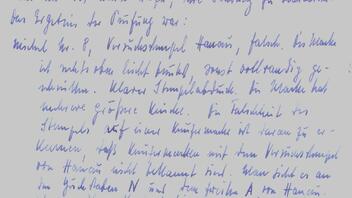 Das Ergebnis der Prüfung war:
Michel Nr. 8, Versuchsstempel Hanau, falsch. Die Marke
ist rechts oben leicht punkt, sonst vollrandig ge-
schnitten. Klarer Stempelabdruck. Die Marke hat
mehrere größere Knicke. Die Falschheit des
Stempels auf einer Kreuzermarke ist daran zu er-
kennen, daß Kreuzermarken mit dem Versuchsstempel
von Hanau nicht bekannt sind. Man sieht es an
den Buchstaben N und dem zweiten A von Hanau.